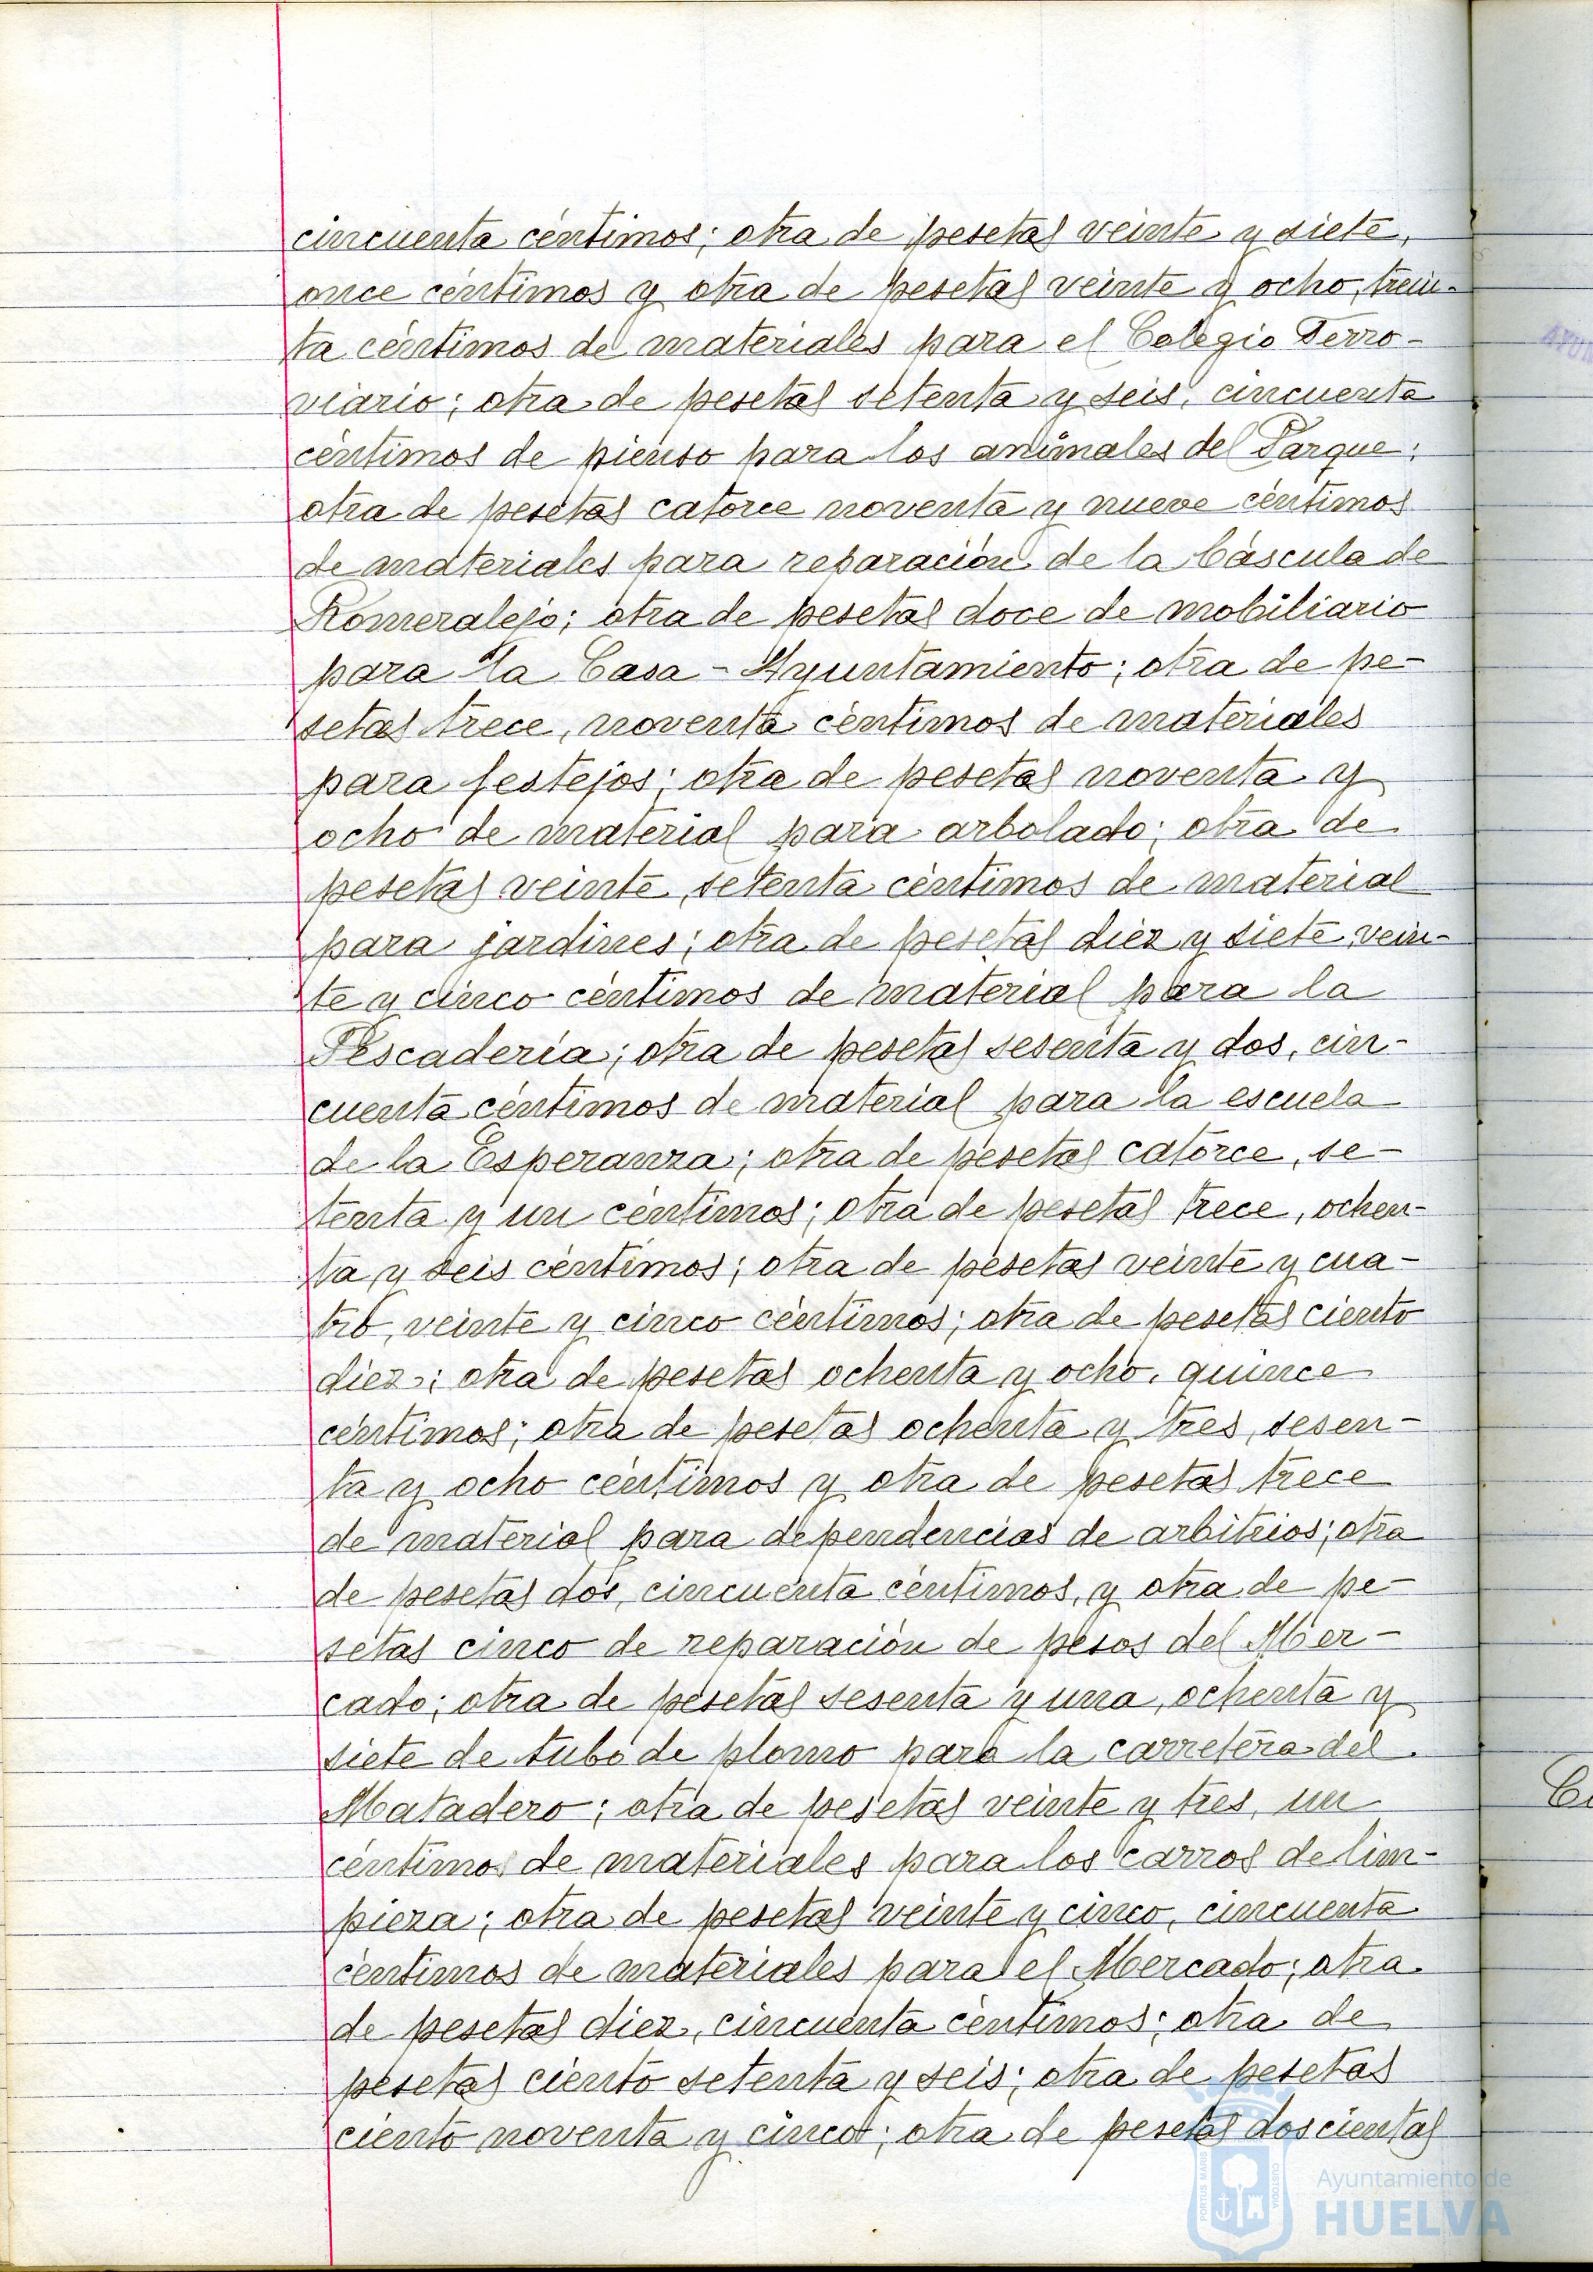 cincuenta céntimos; otra de pesetas veinte y siete,
once céntimos y otra de pesetas veinte y ocho, trein-
ta céntimos de materiales para el Colegio Ferro-
viario; otra de pesetas setenta y seis, cincuenta
céntimos de pienso para los animales del Parque;
otra de pesetas catorce noventa y nueve céntimos
de materiales para reparación de la báscula de
Romeralejo; otra de pesetas doce de mobiliario
para la Casa-Ayuntamiento; otra de pe-
setas trece, noventa céntimos de materiales
para festejos; otra de pesetas noventa y
ocho de material para arbolado; otra de
pesetas veinte, setenta céntimos de material
para jardines; otra de pesetas diez y siete, vein-
te y cinco céntimos de material para la
Pescadería; otra de pesetas sesenta y dos, cin-
cuenta céntimos de material para la escuela
de la Esperanza; otra de pesetas catorce, se-
tenta y un céntimos; otra de pesetas trece, ochen-
ta y seis céntimos; otra de pesetas veinte y cua-
tro, veinte y cinco céntimos; otra de pesetas ciento
diez; otra de pesetas ochenta y ocho, quince
céntimos; otra de pesetas ochenta y tres, sesen-
ta y ocho céntimos y otra de pesetas trece
de material para dependencias de arbitrios; otra
de pesetas dos, cincuenta céntimos, y otra de pe-
setas cinco de reparación de pesos del Mer-
cado; otra de pesetas sesenta y una, ochenta y
siete de tubo de plomo para la carretera del
Matadero; otra de pesetas veinte y tres, un
céntimos de materiales para los carros de lim-
pieza; otra de pesetas veinte y cinco, cincuenta
céntimos de materiales para el Mercado; otra
de pesetas diez, cincuenta céntimos; otra de
pesetas ciento setenta y seis; otra de pesetas
ciento noventa y cinco; otra de pesetas doscientas
PORTUS MARIS
CUSTODIA
Ayuntamiento de
HUELVA